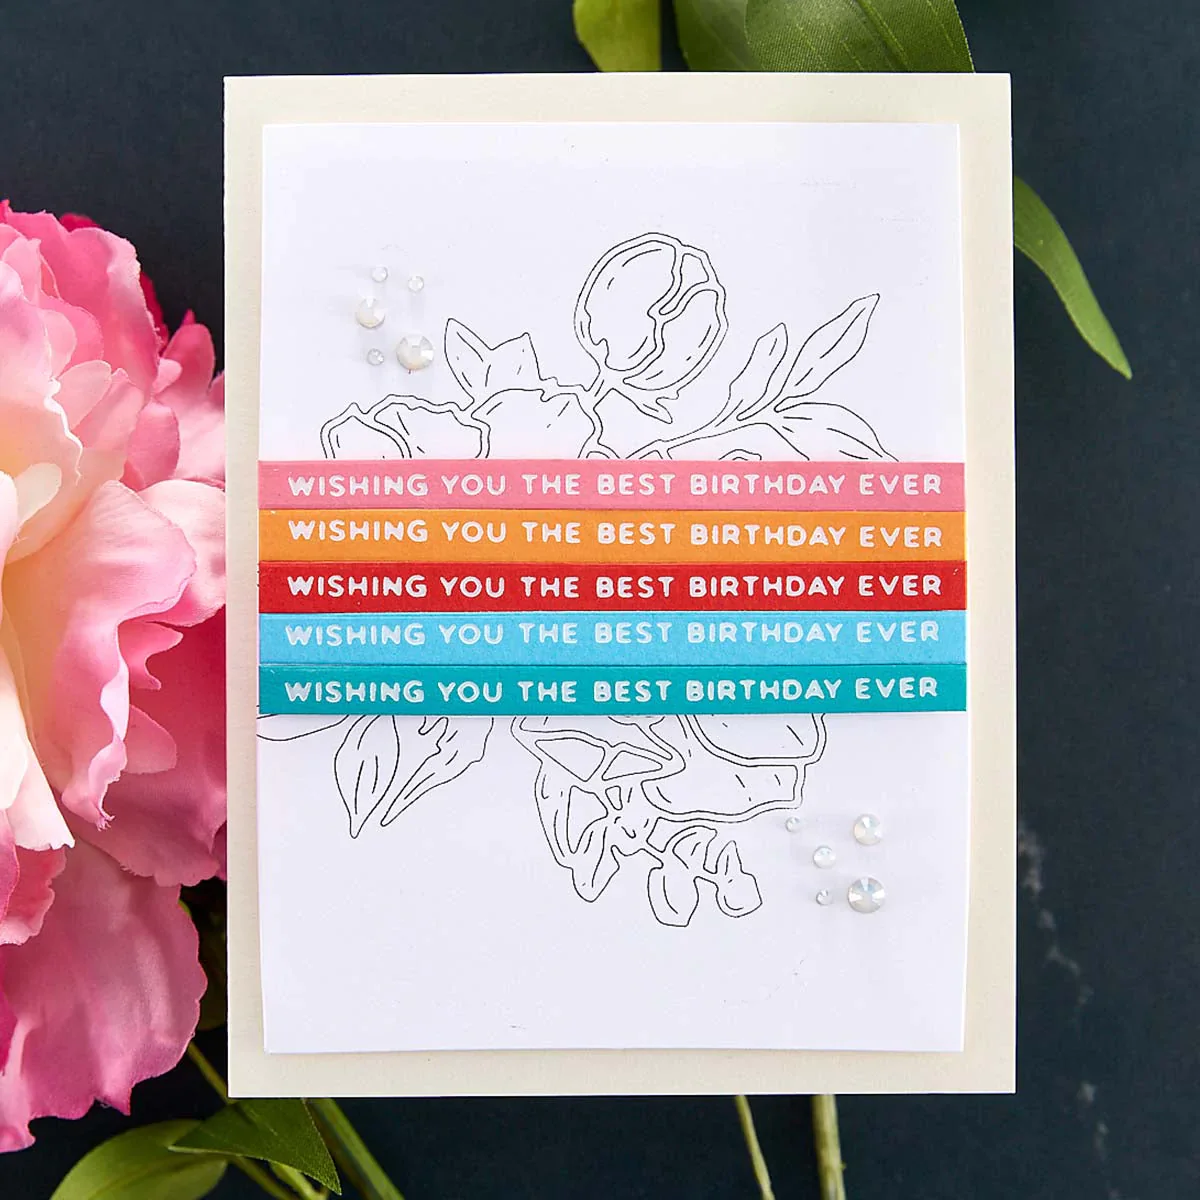 WISHING YOU THE BEST BIRTHDAY EVER
WISHING YOU THE BEST BIRTHDAY EVER
WISHING YOU THE BEST BIRTHDAY EVER
WISHING YOU THE BEST BIRTHDAY EVER
WISHING YOU THE BEST BIRTHDAY EVER